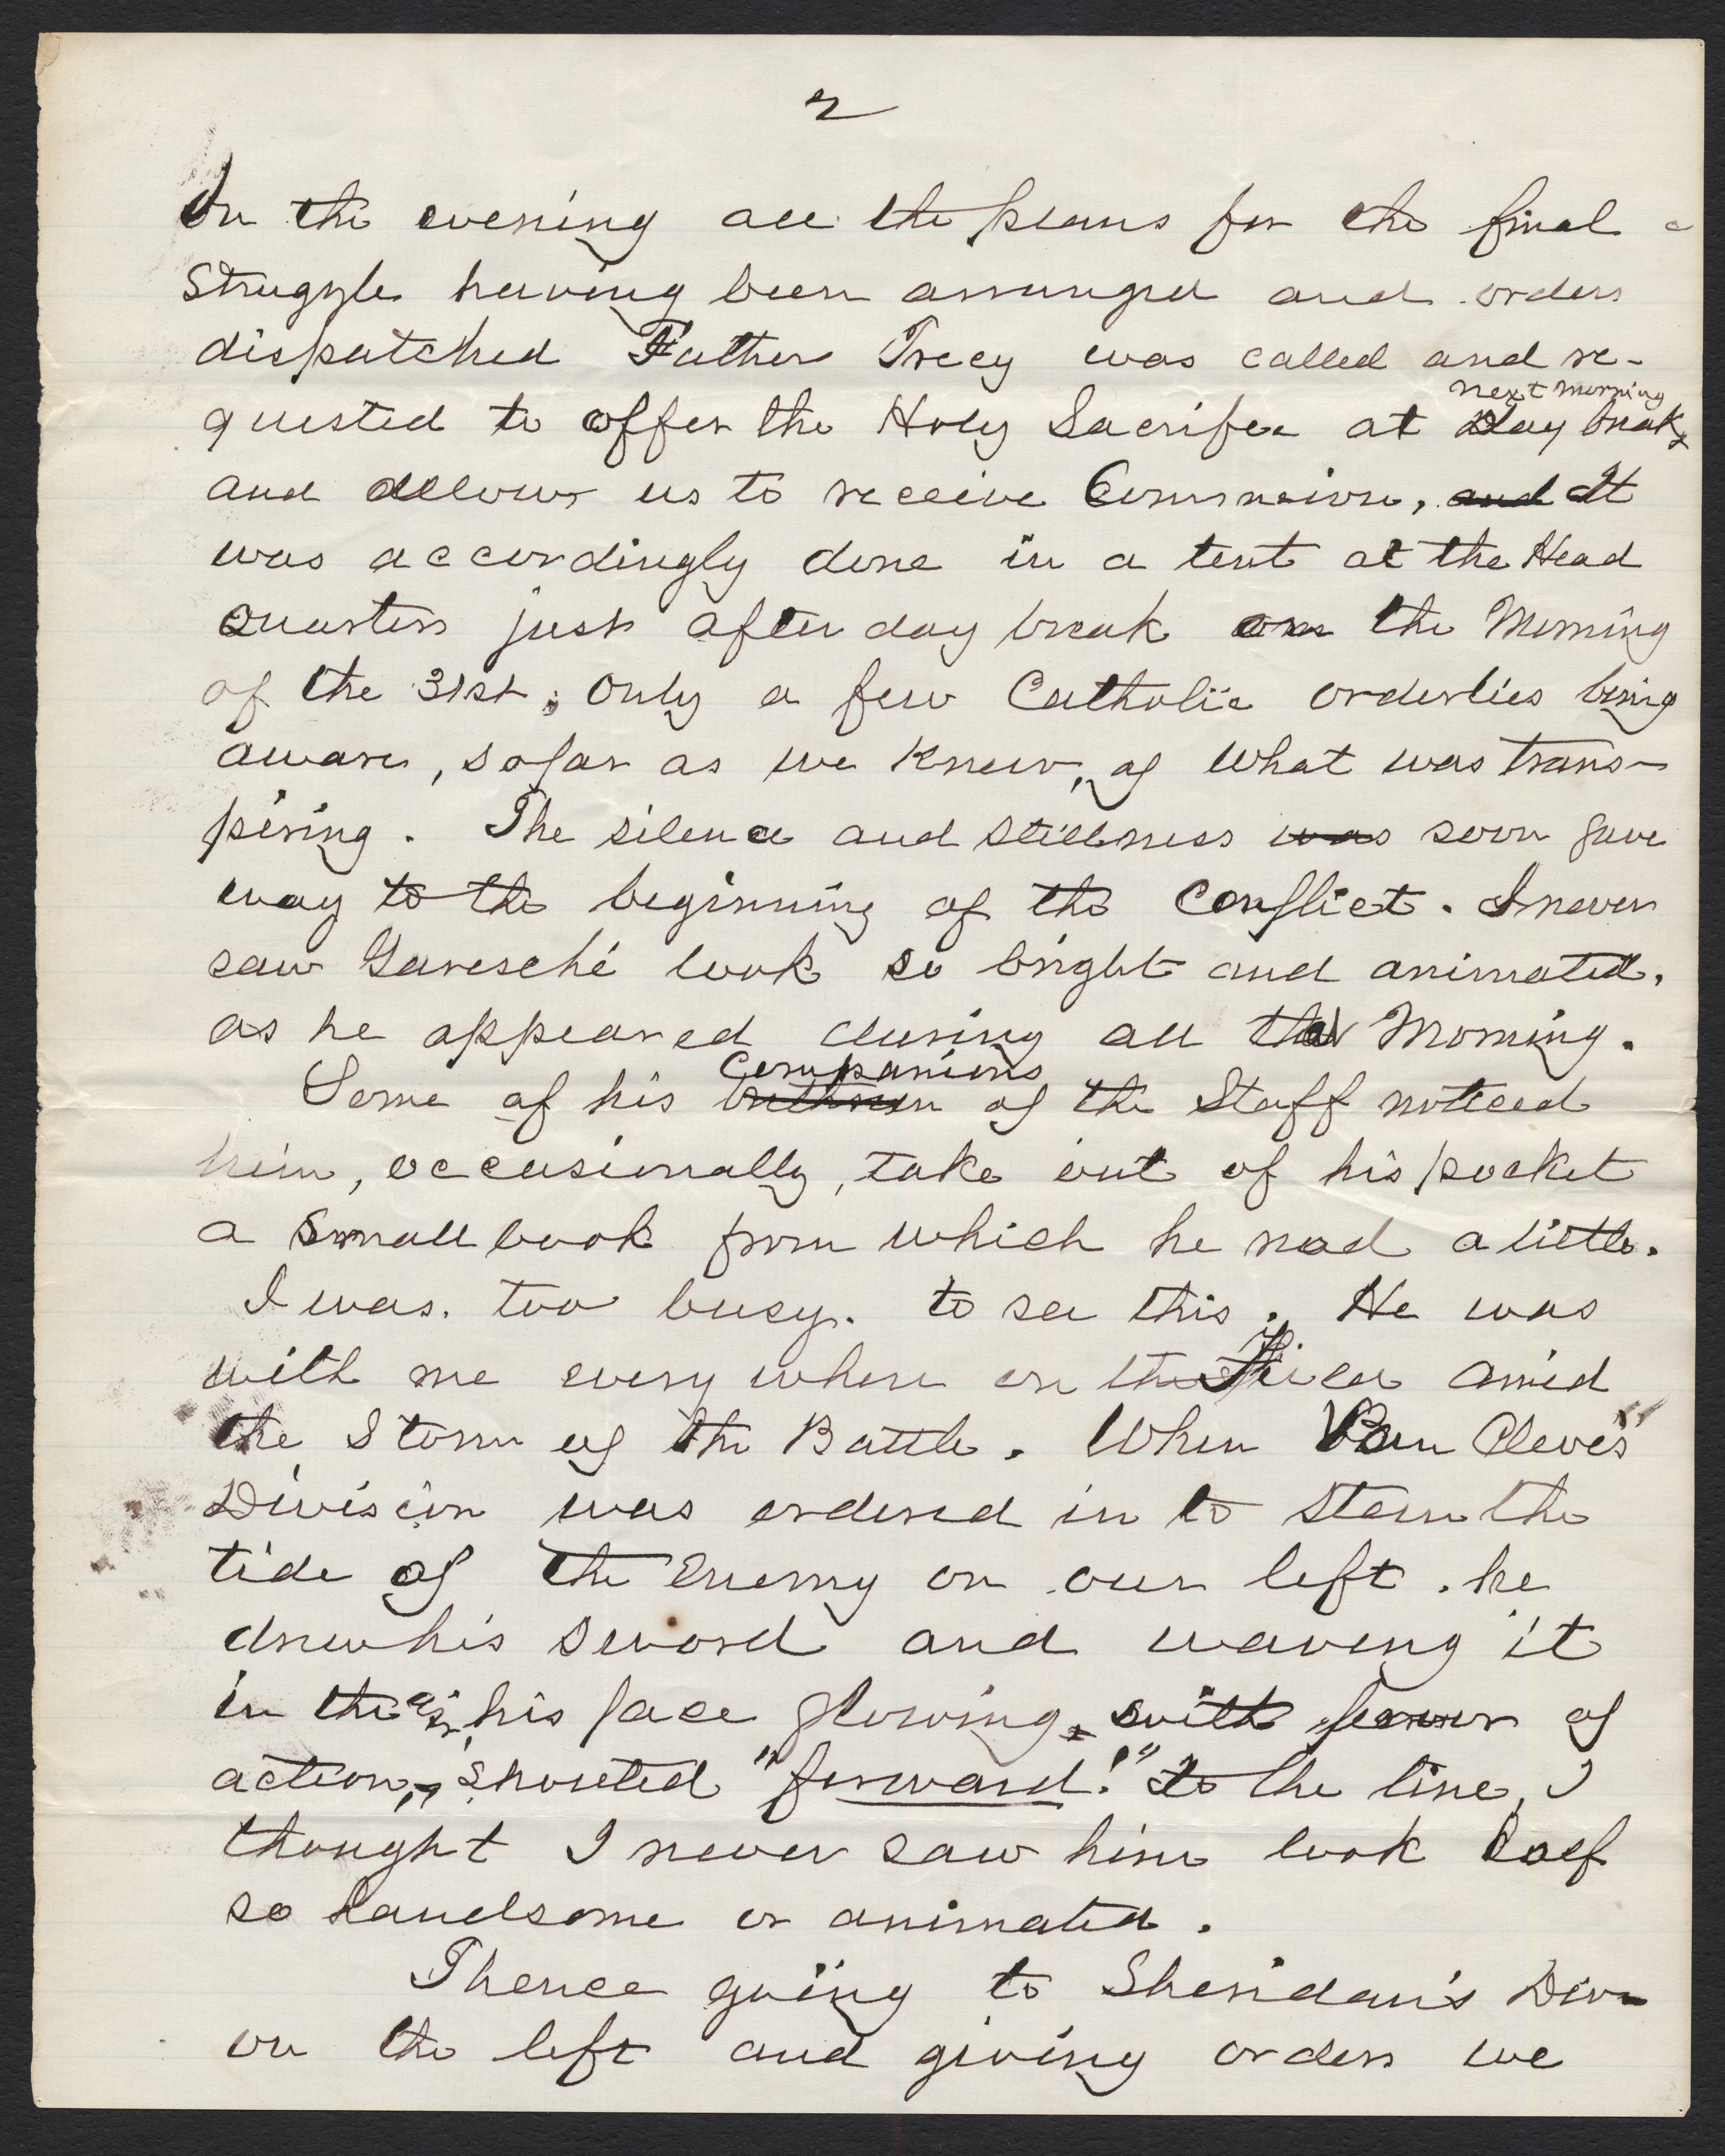 2
In the evening all the plans for the final
Struggle having been arranged and orders
dispatched Father Trecy was called and re-
next morning
quested to offer the Holy Sacrifice at Day break,
and allow us to receive Communion, and It
was accordingly done in a tent at the Head
Quarters just after day break on the Morning
of the 31st; Only a few Catholic orderlies being
aware, so far as we knew, of what was trans-
piring. The silence and stillness was soon gave
way to the beginning of the Conflict. I never
saw Garesché look so bright and animated,
as he appeared during all that Morning.
Companions
Some of his brethren of the Staff noticed
him, occasionally, take out of his pocket
a small book from which he read a little.
I was. too busy. to see this. He was
with me every where on the field amid
the Storm of the Battle. When Van Cleve's
Division was ordered in to stem the
tide of the Enemy on our left. he
drew his sword and waving it
in the air, his face glowing, with fervor of
action, shouted "forward!" to the line, I
thought I never saw him look
so handsome or animated.
Thence going to Sheridan's Div-
on the left and giving orders we